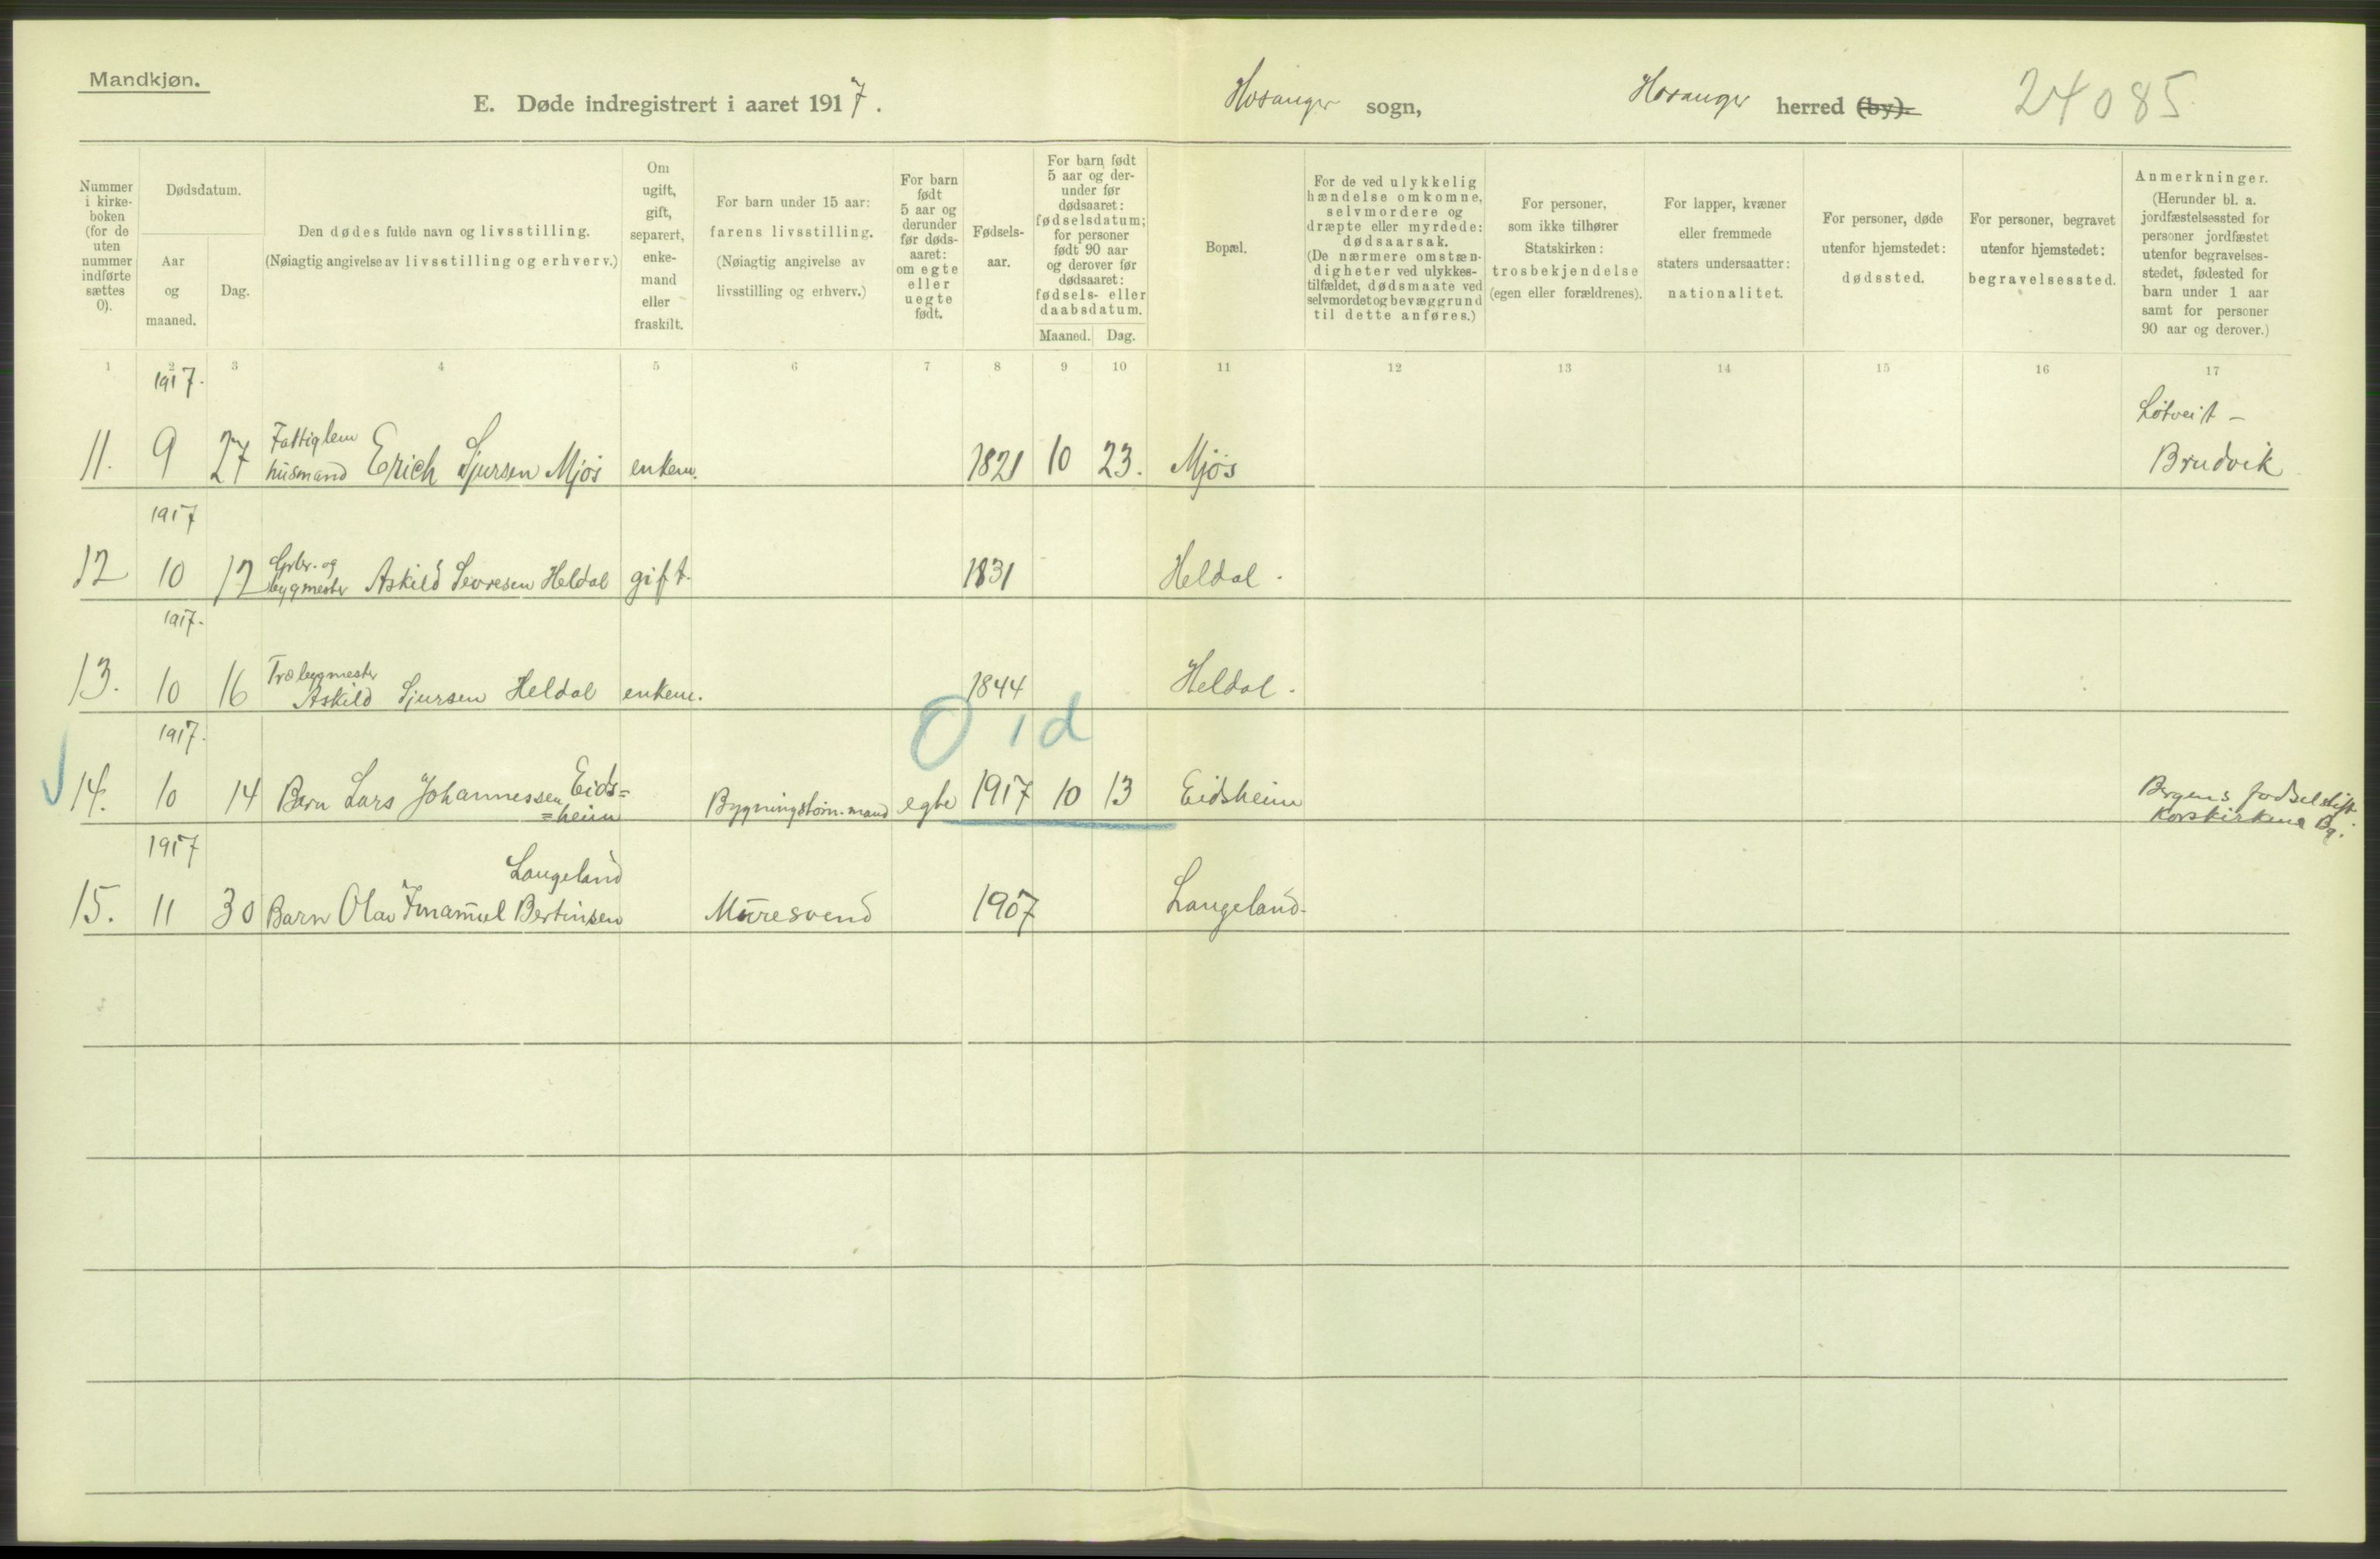 Mandkjøn.
E. Døde indregistrert i aaret 1917. Hosanger sogn, Hosanger herred (by). 24085
Nummer i kirkeboken (for de uten nummer indførte sættes 0).
Dødsdatum.
Aar og maaned.
Dag.
Den dødes fulde navn og livsstilling.
(Nøiagtig angivelse av livsstilling og erhverv.)
Om ugift, gift, separert, enkemand eller fraskilt.
For barn under 15 aar:
farens livsstilling.
(Nøiagtig angivelse av livsstilling og erhverv.)
For barn født 5 aar og derunder før dødsaaret: om egte eller uegte født.
Fødselsaar.
For barn født 5 aar og derunder før dødsaaret: fødselsdatum; for personer født 90 aar og derover før dødsaaret: fødsels- eller daabsdatum.
Maaned. Dag.
Bopæl.
For de ved ulykkelig hændelse omkomne, selvmordere og dræpte eller myrdede: dødsaarsak.
(De nærmere omstændigheter ved ulykkestilfældet, dødsmaate ved selvmordet og bevæggrund til dette anføres.)
For personer, som ikke tilhører Statskirken: trosbekjendelse (egen eller forældrenes).
For lapper, kvæner eller fremmede staters undersaatter: nationalitet.
For personer, døde utenfor hjemstedet: dødssted.
For personer, begravet utenfor hjemstedet: begravelsessted.
Anmerkninger.
(Herunder bl. a. jordfæstelsessted for personer jordfæstet utenfor begravelsesstedet, fødested for barn under 1 aar samt for personer 90 aar og derover.)
1 2 3 4 5 6 7 8 9 10 11 12 13 14 15 16 17
1917.
Løtveit –
Fattiglem
11. 9 27 husmand Erich Sjursen Mjøs enkem. 1821 10 23. Mjøs Brudvik
1917
Gbr. og
12 10 12 bygmester Askild Severesen Heldal gift. 1831 Heldal.
1917.
Træbygmester
13. 10 16 Askild Sjursen Heldal enkem. 1844 Heldal.
0 1d
1917.
14. 10 14 Barn Lars Johannessen Eids= Bygningstøm.mand egte 1917 10 13 Eidsheim Bergens fødselstift.
=heim Korskirken Bg.
1917
Langeland
15. 11 30 Barn Olav Imanuel Bertinsen Muresvend 1907 Langeland.